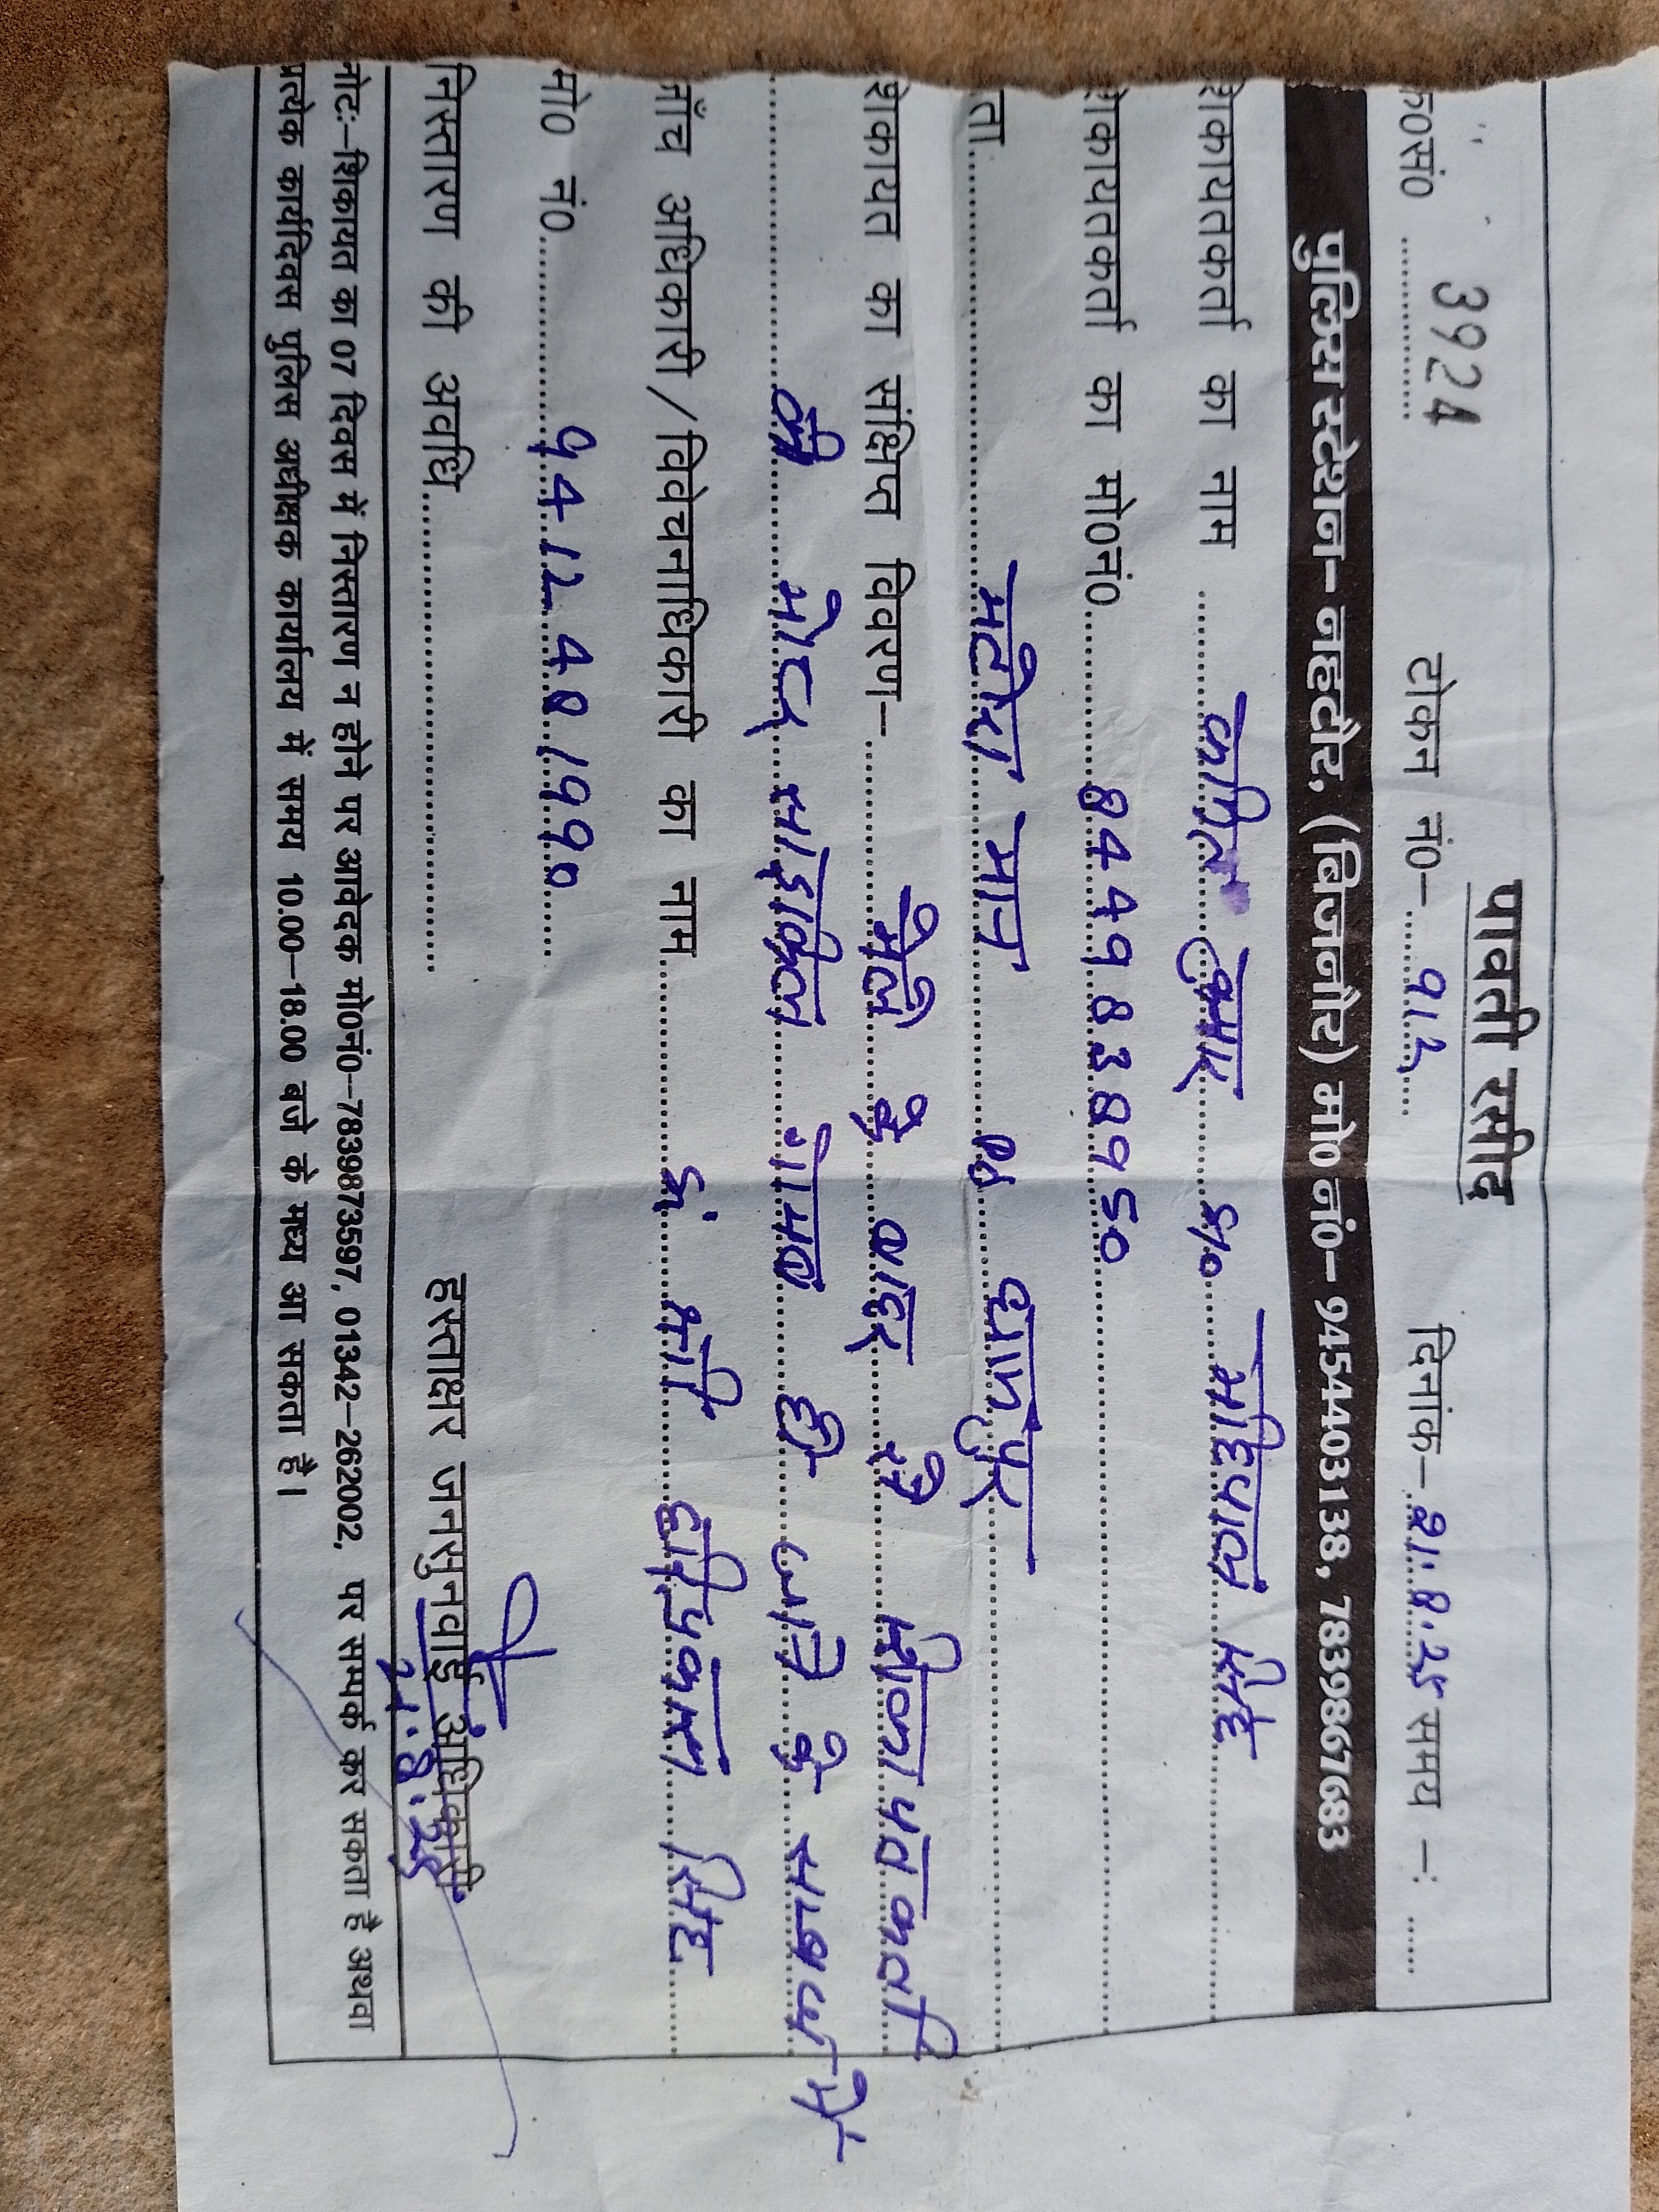 पावती रसीद
क०सं० ........ 3924 टोकन नं०-......912..... दिनांक-..21.8.25 समय -: ......
पुलिस स्टेशन- नहटौर, (बिजनौर) मो० नं०- 9454403138, 7839867683
शिकायतकर्ता का नाम ........ कपिल कुमार S/o महिपाल सिंह
शिकायतकर्ता का मो०नं०........8449838950
पता........ मटौरा मान PS धामपुर
शिकायत का संक्षिप्त विवरण-........ मेले के बाहर से शिकायतकर्ता
........की मोटर साईकिल गायब हो जाने के सम्बन्ध में
जाँच अधिकारी/विवेचनाधिकारी का नाम........ सिंह
मो० नं०........9412481990
निस्तारण की अवधि........
हस्ताक्षर जनसुनवाई अधिकारी
21.8.25
नोटः-शिकायत का 07 दिवस में निस्तारण न होने पर आवेदक मो०नं०-7839873597, 01342-262002, पर सम्पर्क कर सकता है अथवा
प्रत्येक कार्यदिवस पुलिस अधीक्षक कार्यालय में समय 10.00-18.00 बजे के मध्य आ सकता है।